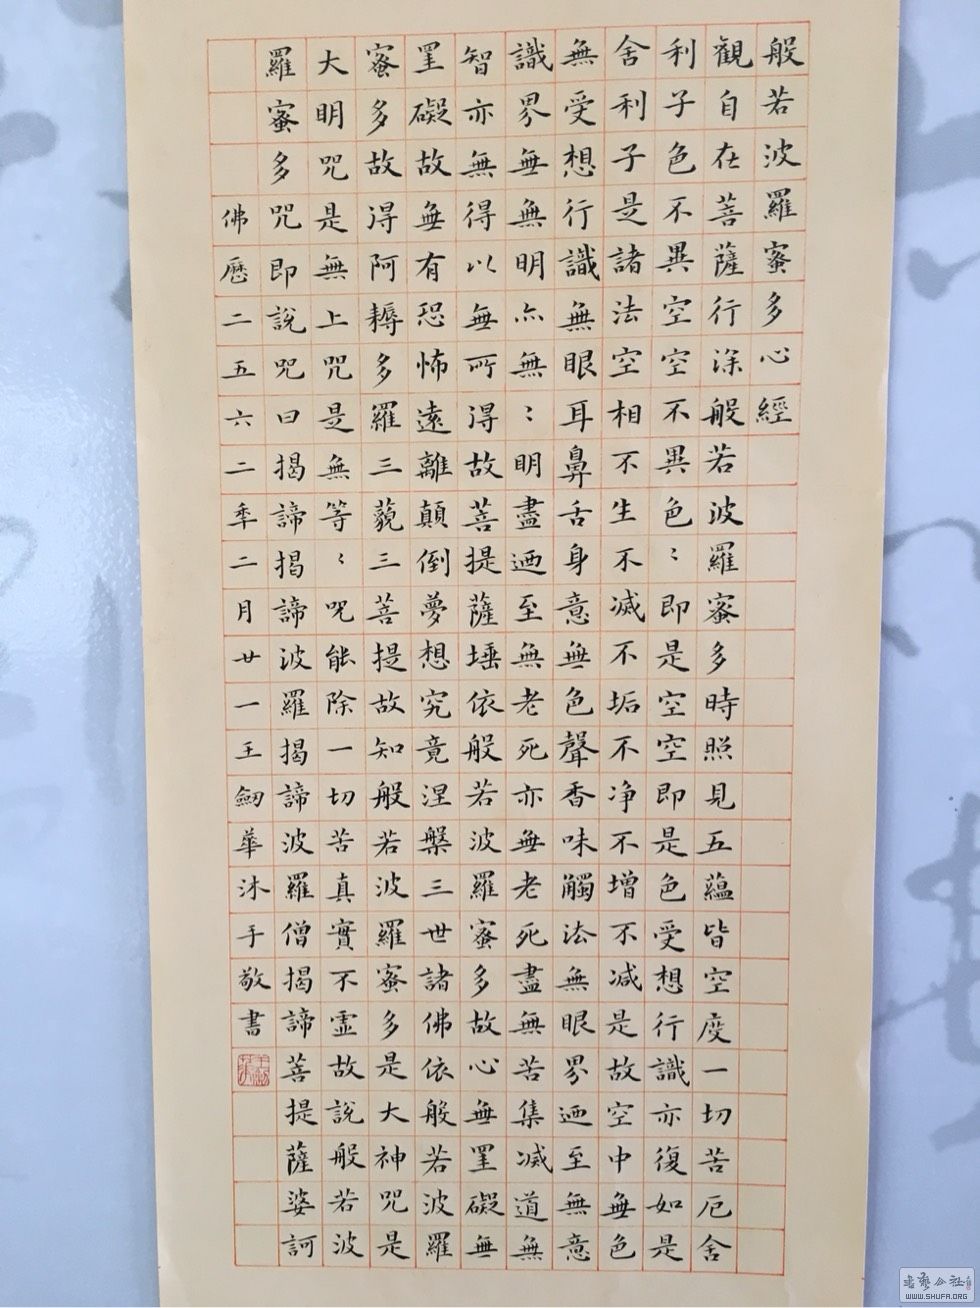 般若波羅蜜多心經
觀自在菩薩行深般若波羅蜜多時照見五蘊皆空度一切苦厄舍
利子色不異空空不異色〻即是空空即是色受想行識亦復如是
舍利子是諸法空相不生不滅不垢不净不增不減是故空中無色
無受想行識無眼耳鼻舌身意無色聲香味觸法無眼界迺至無意
識界無無明亦無〻明盡迺至無老死亦無老死盡無苦集滅道無
智亦無得以無所得故菩提薩埵依般若波羅蜜多故心無罣礙無
罣礙故無有恐怖遠離顛倒夢想究竟涅槃三世諸佛依般若波羅
蜜多故得阿耨多羅三藐三菩提故知般若波羅蜜多是大神咒是
大明咒是無上咒是無等〻咒能除一切苦真實不虛故說般若波
羅蜜多咒即說咒曰揭諦揭諦波羅揭諦波羅僧揭諦菩提薩婆訶
佛曆二五六二年二月廿一王劒華沐手敬書
书艺公社
WWW.SHUFA.ORG